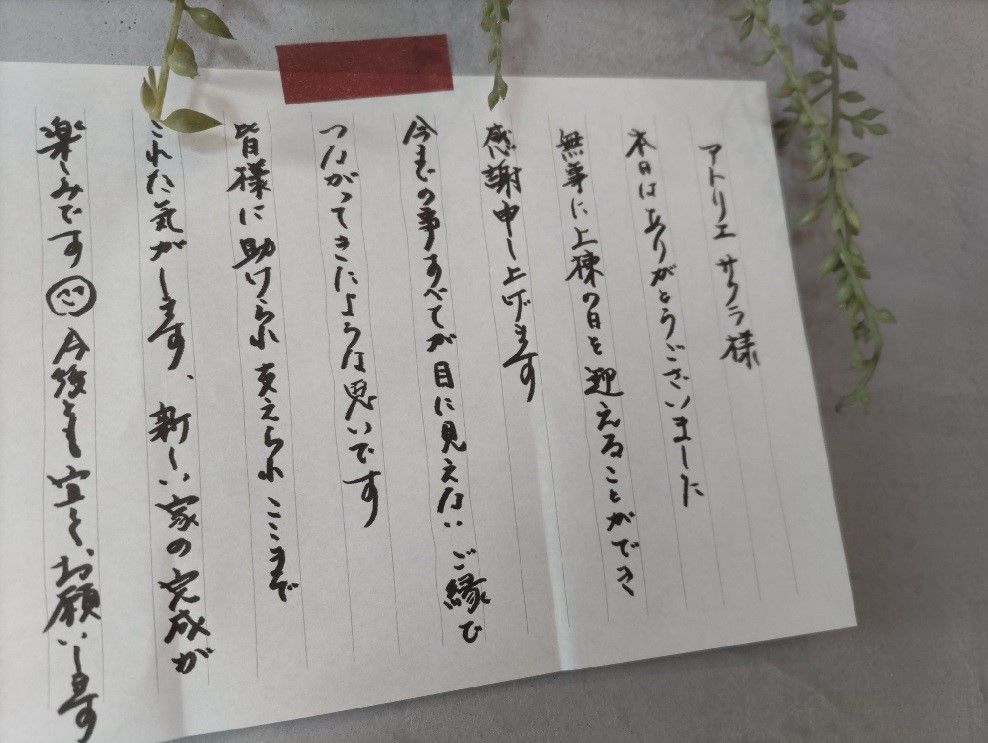 アトリエ サクラ様
本日はありがとうございました
無事に上棟の日を迎えることができ
感謝申し上げます
今までの事すべてが目に見えないご縁で
つながってきたような思いです
皆様に助けられ支えられここまで
これた気がします、新しい家の完成が
楽しみです 今後とも宜しくお願いします